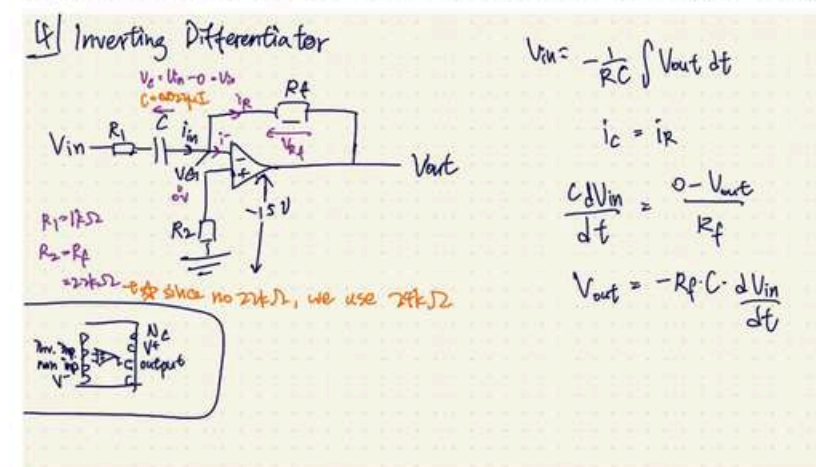 4 Inverting Differentiator
Vc = Vin - 0 = Vin
C
iin
iR
Rf
VRf
i-
Vin
R1
VG
0V
Vout
-15V
R2
R1=1kΩ
R2=Rf
=22kΩ → ☆ since no 22kΩ, we use 24kΩ
Inv. inp.
non inp
V-
NC
V+
output
Vin = -1/RC ∫ Vout dt
ic = iR
CdVin/dt = 0-Vout/Rf
Vout = -Rf·C·dVin/dt